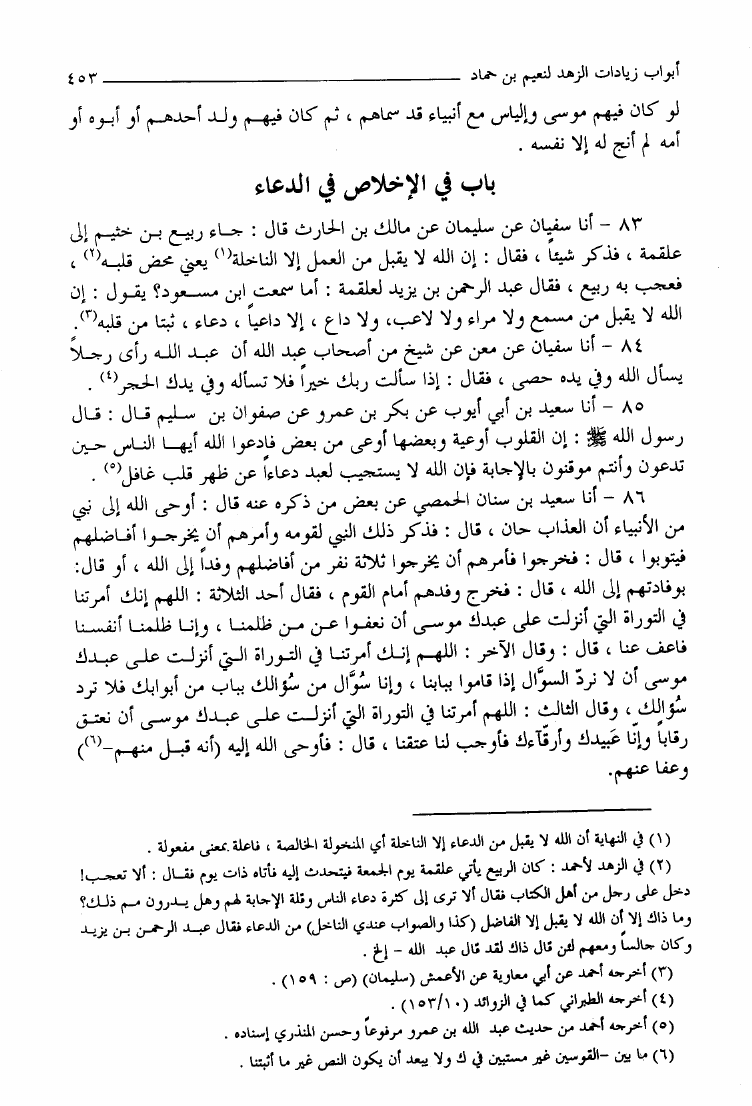 أبواب زيادات الزهد لنعيم بن حماد ــــــــــــــــــــ ٤٥٣
لو كان فيهم موسى وإلياس مع أنبياء قد سماهم ، ثم كان فيهم ولد أحدهم أو أبوه أو
أمه لم أنج له إلا نفسه .
باب في الإخلاص في الدعاء
٨٣ – أنا سفيان عن سليمان عن مالك بن الحارث قال : جاء ربيع بن خثيم إلى
علقمة ، فذكر شيئاً ، فقال : إن الله لا يقبل من العمل إلا الناخلة(١) يعني محض قلبه(٢) ،
فعجب به ربيع ، فقال عبد الرحمن بن يزيد لعلقمة : أما سمعت ابن مسعود؟ يقول : إن
الله لا يقبل من مسمع ولا مراء ولا لاعب، ولا داع ، إلا داعياً ، دعاء ، ثبتا من قلبه(٣).
٨٤ – أنا سفيان عن معن عن شيخ من أصحاب عبد الله أن عبد الله رأى رجلاً
يسأل الله وفي يده حصى ، فقال : إذا سألت ربك خيراً فلا تسأله وفي يدك الحجر(٤) .
٨٥ – أنا سعيد بن أبي أيوب عن بكر بن عمرو عن صفوان بن سليم قال : قال
رسول الله ﷺ : إن القلوب أوعية وبعضها أوعى من بعض فادعوا الله أيها الناس حين
تدعون وأنتم موقنون بالإجابة فإن الله لا يستجيب لعبد دعاءاً عن ظهر قلب غافل(٥) .
٨٦ – أنا سعيد بن سنان الحمصي عن بعض من ذكره عنه قال : أوحى الله إلى نبي
من الأنبياء أن العذاب حان ، قال : فذكر ذلك النبي لقومه وأمرهم أن يخرجوا أفاضلهم
فيتوبوا ، قال : فخرجوا فأمرهم أن يخرجوا ثلاثة نفر من أفاضلهم وفداً إلى الله ، أو قال:
بوفادتهم إلى الله ، قال : فخرج وفدهم أمام القوم ، فقال أحد الثلاثة : اللهم إنك أمرتنا
في التوراة التي أنزلت على عبدك موسى أن نعفوا عن من ظلمنا ، وإنا ظلمنا أنفسنا
فاعف عنا ، قال : وقال الآخر : اللهم إنك أمرتنا في التوراة التي أنزلت على عبدك
موسى أن لا نردّ السوَّال إذا قاموا ببابنا ، وإنا سُوَّال من سُؤالك بباب من أبوابك فلا ترد
سُؤالك ، وقال الثالث : اللهم أمرتنا في التوراة التي أنزلت على عبدك موسى أن نعتق
رقاباً وإنّا عَبيدك وأرقّآءك فأوجب لنا عتقنا ، قال : فأوحى الله إليه (أنه قبل منهم–(٦))
وعفا عنهم.
(١) في النهاية أن الله لا يقبل من الدعاء إلا الناخلة أي المنخولة الخالصة ، فاعلة بمعنى مفعولة .
(٢) في الزهد لأحمد : كان الربيع يأتي علقمة يوم الجمعة فيتحدث إليه فأتاه ذات يوم فقال : ألا تعجب!
دخل على رجل من أهل الكتاب فقال ألا ترى إلى كثرة دعاء الناس وقلة الإجابة لهم وهل يدرون مم ذلك؟
وما ذاك إلا أن الله لا يقبل إلا الفاضل (كذا والصواب عندي الناخل) من الدعاء فقال عبد الرحمن بن يزيد
وكان جالساً ومعهم لئن قال ذاك لقد قال عبد الله – إلخ .
(٣) أخرجه أحمد عن أبي معاوية عن الأعمش (سليمان) (ص : ١٥٩) .
(٤) أخرجه الطبراني كما في الزوائد (١٥٣/١٠) .
(٥) أخرجه أحمد من حديث عبد الله بن عمرو مرفوعاً وحسن المنذري إسناده .
(٦) ما بين –القوسين غير مستبين في ك ولا يبعد أن يكون النص غير ما أثبتنا .